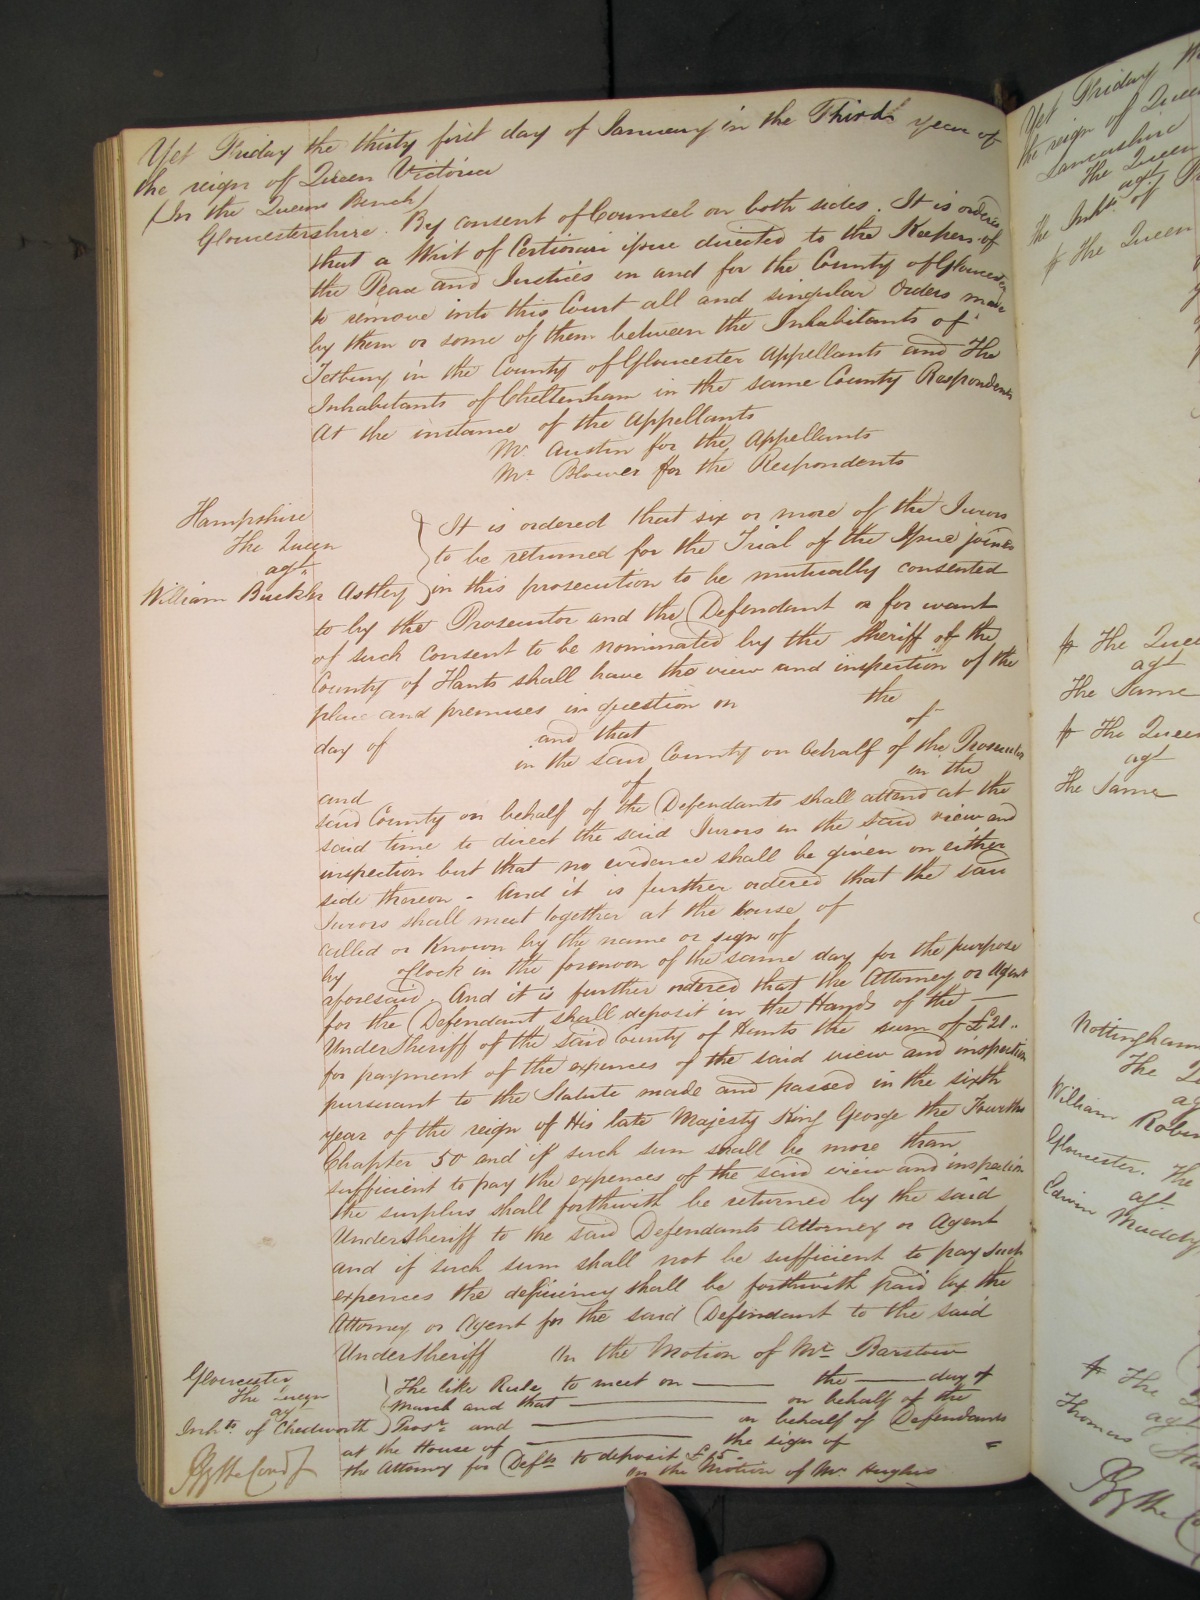 Yet Friday the thirty first day of January in the Third year of
the reign of Queen Victoria
(In the Queens Bench)
Gloucestershire. By consent of Counsel on both sides. It is ordered
that a Writ of Certiorari issue directed to the Keepers of
the Peace and Justices in and for the County of Gloucester
to remove into this Court all and singular Orders made
by them or some of them between the Inhabitants of
Tetbury in the County of Gloucester Appellants and The
Inhabitants of Cheltenham in the same County Respondents
At the instance of the Appellants
Mr. Austin for the Appellants
Mr. Blower for the Respondents
Hampshire
The Queen
agt.
William Buckle Astley
It is ordered that six or more of the Jurors
to be returned for the Trial of the Issue joined
in this prosecution to be mutually consented
to by the Prosecutor and the Defendant or for want
of such consent to be nominated by the Sheriff of the
County of Hants shall have the view and inspection of the
place and premises in question on the
day of and that of
in the said County on behalf of the Prosecutor
and of in the
said County on behalf of the Defendants shall attend at the
said time to direct the said Jurors in the said view and
inspection but that no evidence shall be given on either
side thereon - And it is further ordered that the said
Jurors shall meet together at the house of
called or known by the name or sign of
by oClock in the forenoon of the same day for the purpose
aforesaid. And it is further ordered that the Attorney or Agent
for the Defendant shall deposit in the Hands of the
UnderSheriff of the said County of Hants the sum of £21..
for payment of the expences of the said view and inspection
pursuant to the Statute made and passed in the sixth
year of the reign of His late Majesty King George the Fourth
Chapter 50 and if such sum shall be more than
sufficient to pay the expences of the said view and inspection
the surplus shall forthwith be returned by the said
UnderSheriff to the said Defendants Attorney or Agent
and if such sum shall not be sufficient to pay such
expences the deficiency shall be forthwith paid by the
Attorney or Agent for the said Defendant to the said
UnderSheriff On the Motion of Mr. Barstow
Gloucester
The Queen
agt
Inhts. of Chedworth
The like Rule to meet on the day of
March and that on behalf of the
Prosr. and on behalf of Defendants
at the House of the sign of
the Attorney for Defts to deposit £15..
On the Motion of Mr. Hughes
By the Court
Yet Friday
the reign of Queen
Lancashire
The Queen
agt
The Inhts. of
fr The Queen
fr The Queen
agt
The Same
fr The Queen
agt
The Same
Nottingham
The
agt
William
Gloucester. The
agt
Edwin
fr The
agt
Thomas
By the